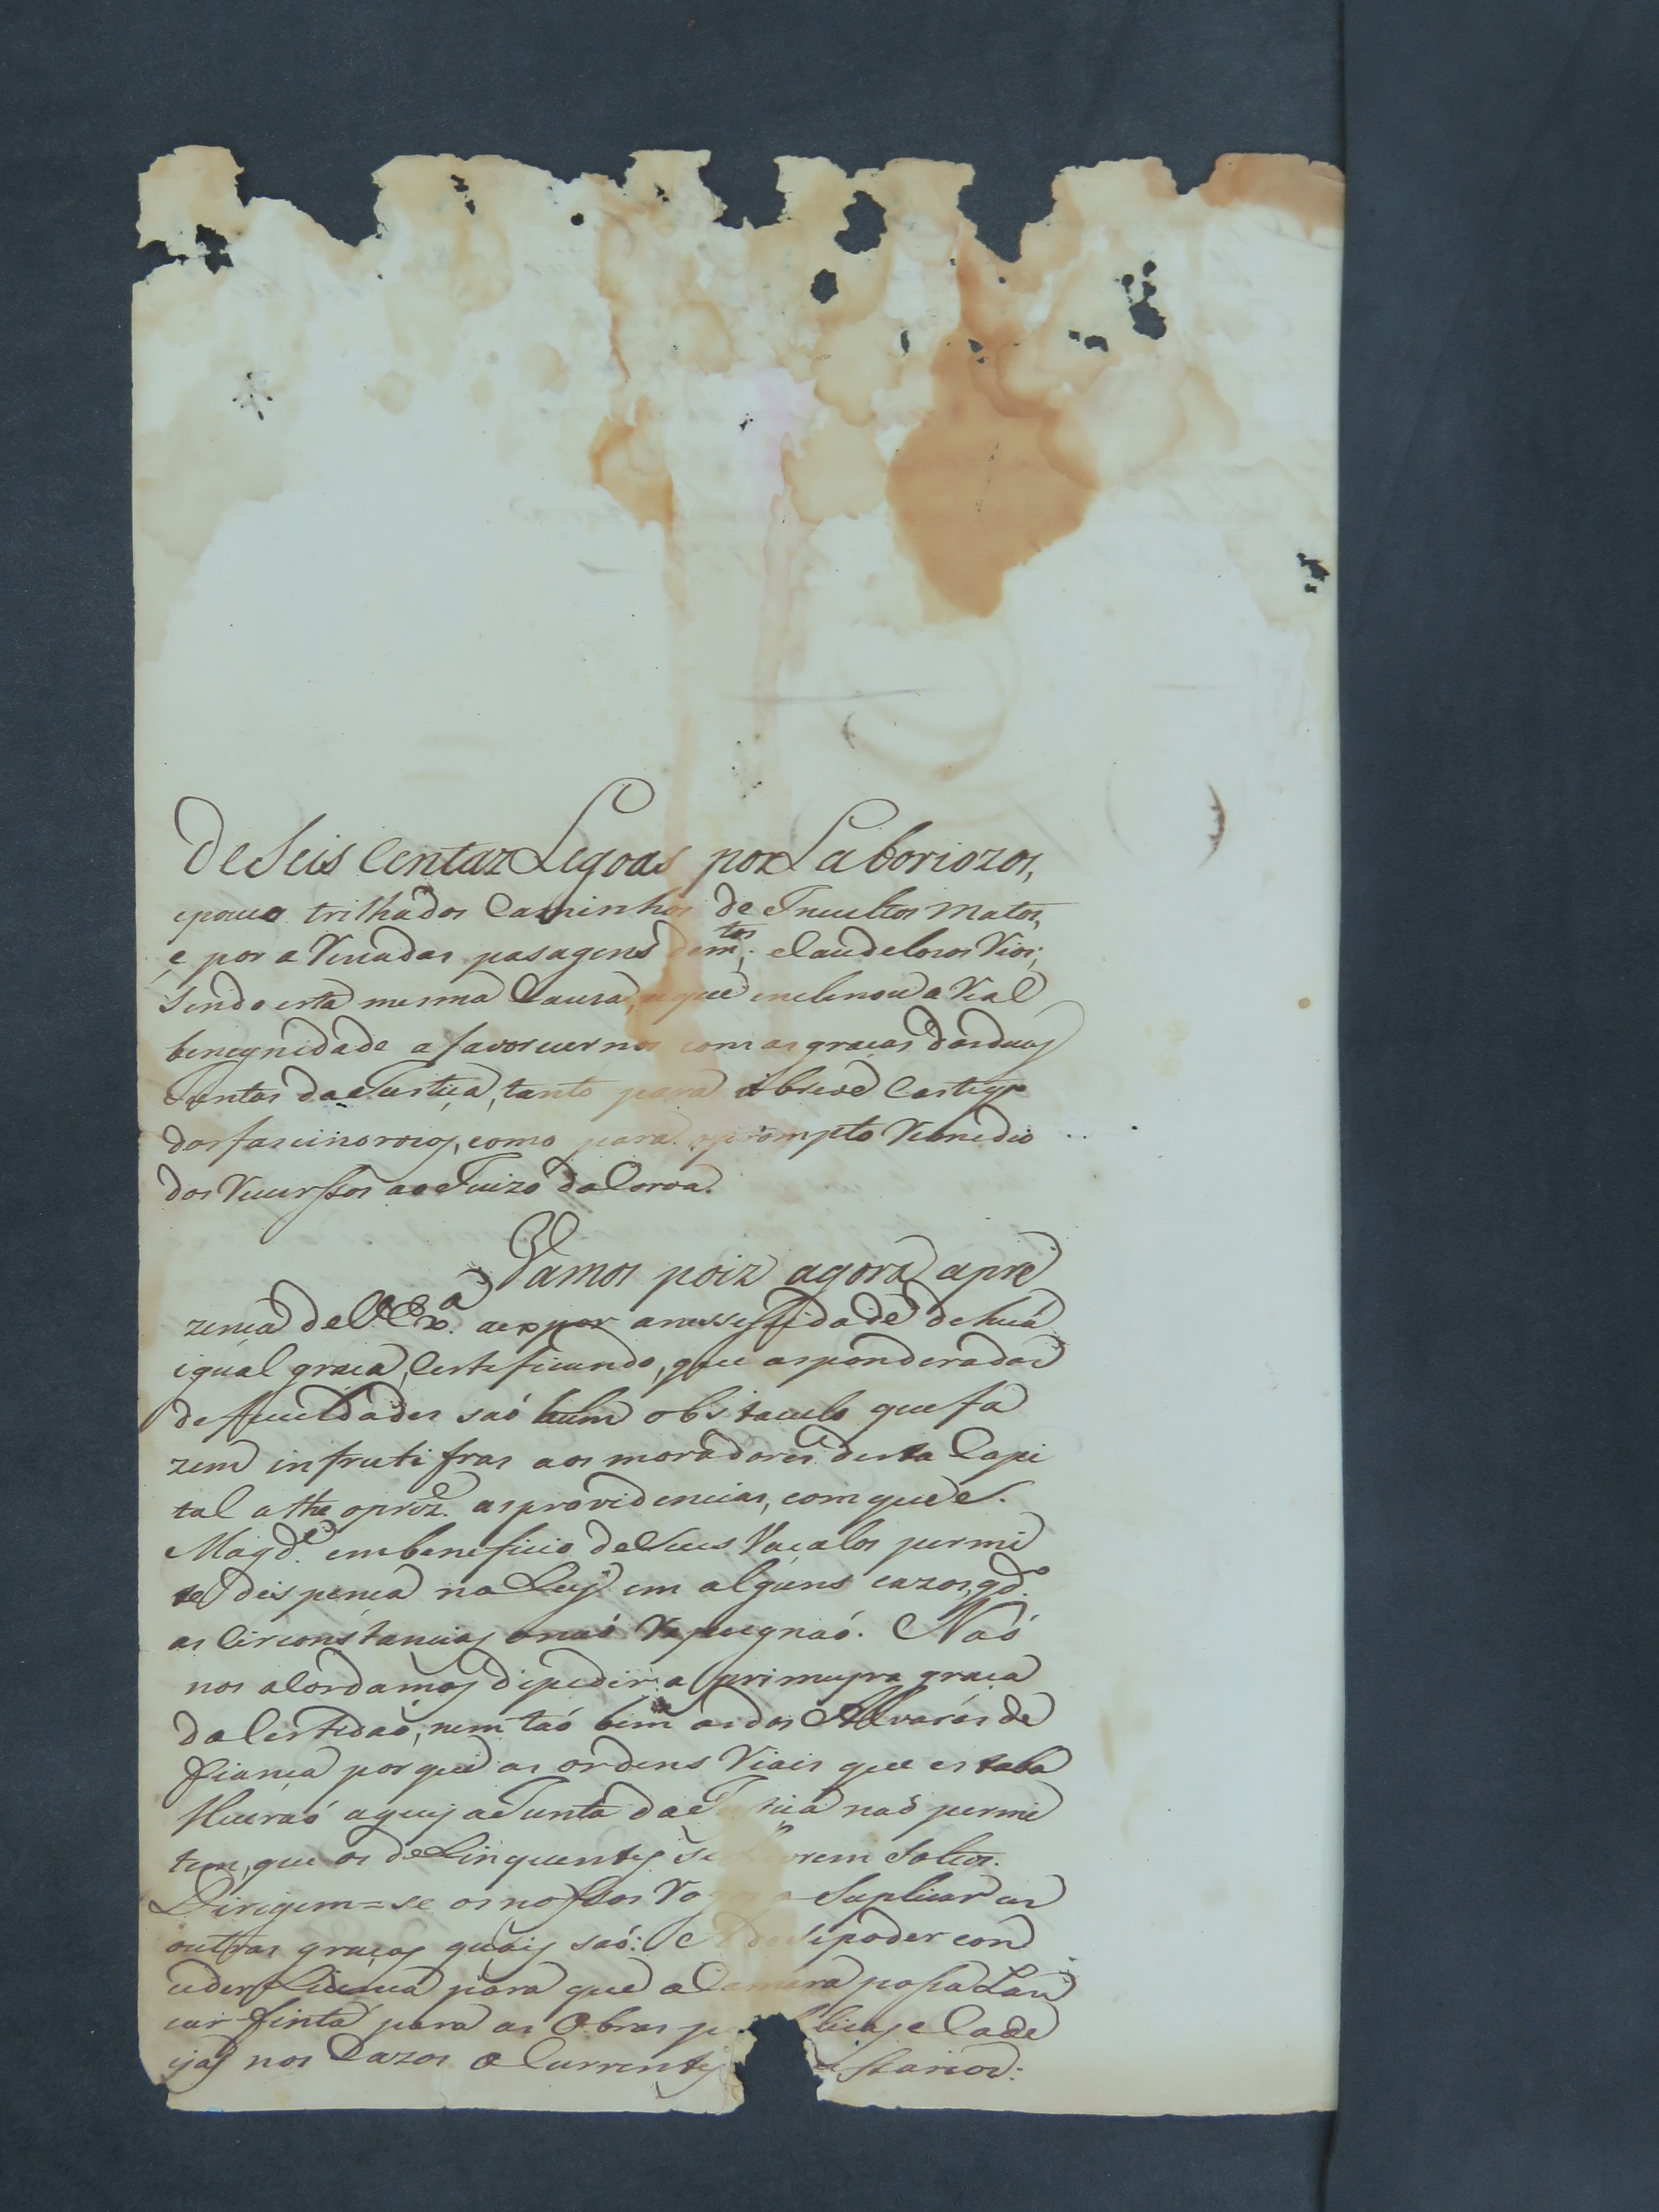 De Seis Centaz Legoas por Laboriozos,
epouco trilhados Caminhos de Incultos Matos,
e por a Reriadas pasagens de mtos; e Caudelosos Rios;
Sendo esta mesma Cauza, aque enclinou a Real
benegnidade a favorecernos com as graças das duas
Juntas da Justiça, tanto para obreve Castigo
dos facinorozos, como para oprompto Remedio
dos Recurssos ao Juizo da Coroa.
Vamos poiz agora apre
zença de V. Exa. aexpor anessessidade dehuã
igual graça, Certeficando, que asponderadas
deficuldades saó hum obstaculo quefa
zem infrutifras aos moradores desta Capi
tal athe oprez.e as providencias, com que S.
Magd.e embeneficio deSeus Vaçalos permi
te despença na Ley em alguns cazos, qd.o
as Circonstancias onaó Repugnaó. Naó
nos alordamos depedir a primeyra graça
da Certidaó, nem taó bem as dos Alvarás de
fiança por que as ordens Riais que estabe
lleceraó aquy aJunta da Justiça naó permi
tem, que os deLinquentes se Livrem Soltos.
Dirigem=se os nossos Rogos a Suplicar as
outras graças quais saó: A de se poder con
ceder Licença para que a Camara possa Lan
çar finta para as Obras p blicas e Cade
yas nos Cazos oCurrentes ssarios: